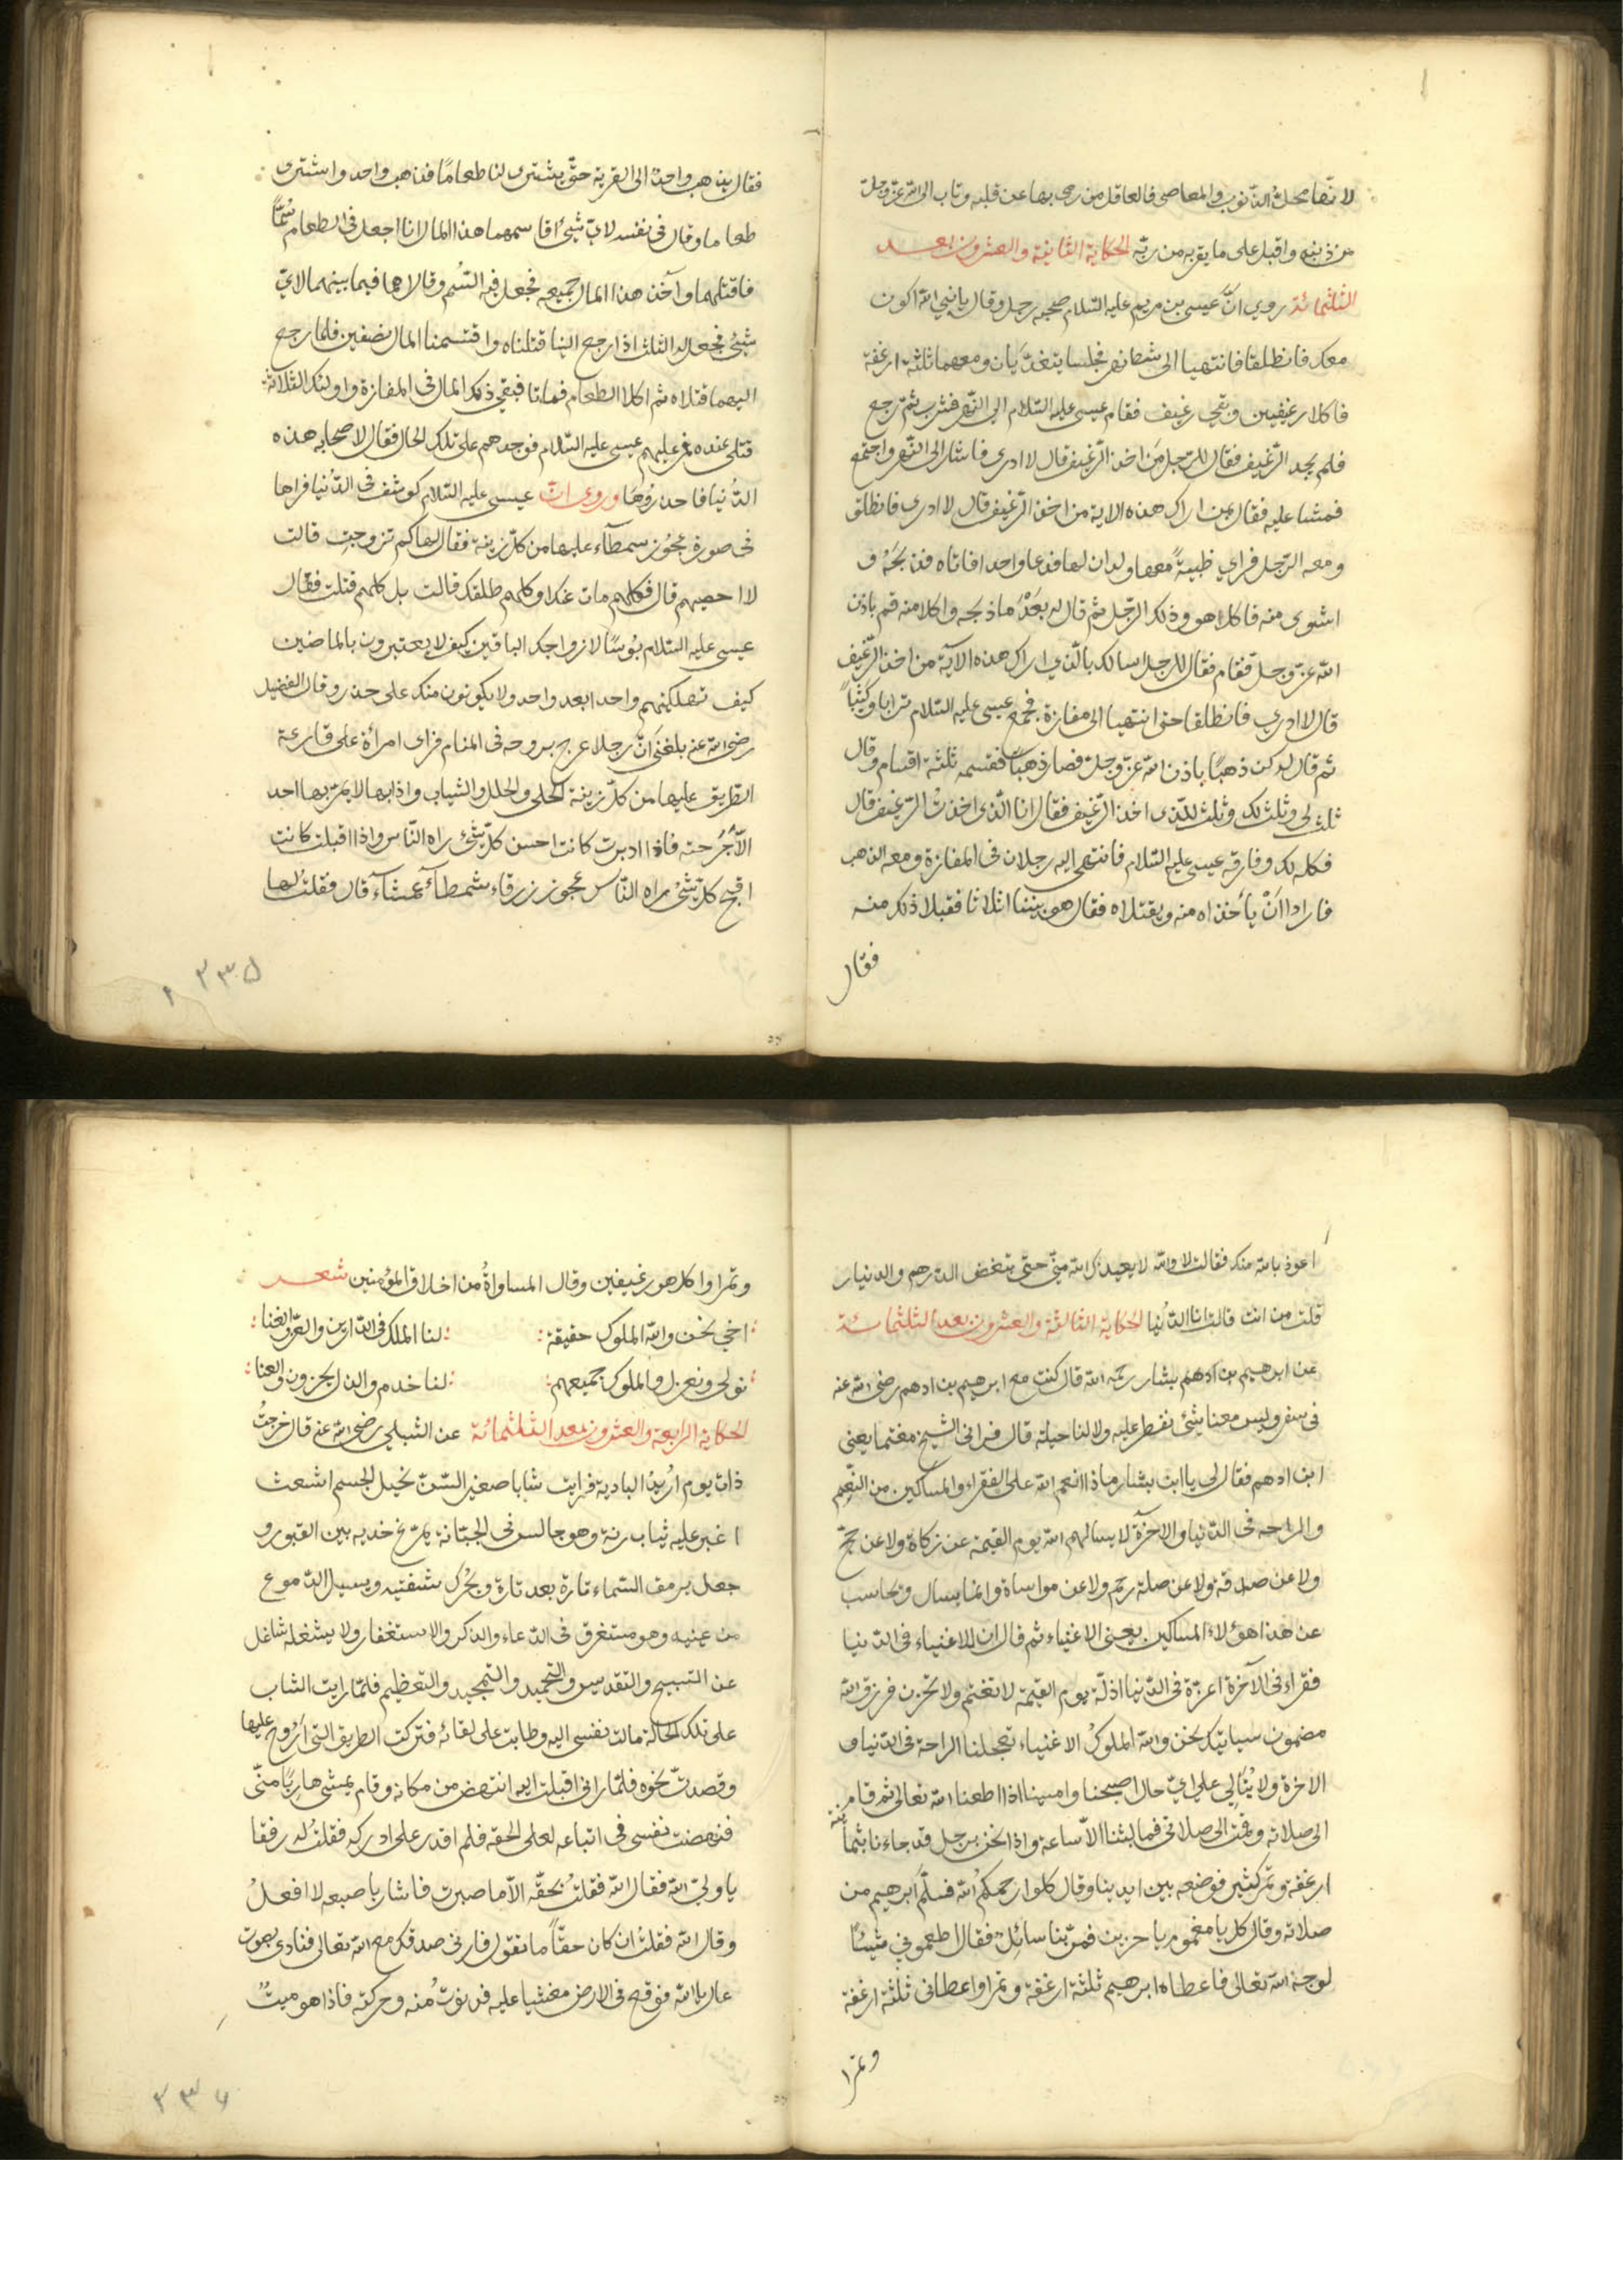 لانّها محلّ الذنوب والمعاصي فالعاقل من رمى بها عن قلبه وتاب الى الله عزّ وجلّ
من ذنبه واقبل على ما يقربه من ربّه الحكاية الثانية والعشرون بعد
الثلثمائة روي انّ عيسى بن مريم عليه السّلام صحبه رجل وقال يا نبي الله اكون
معك فانطلقا فانتهيا الى شط نهر فجلسا يتغدّيان ومعهما ثلثة ارغفة
فاكلا رغيفين وبقي رغيف فقام عيسى عليه السّلام الى النّهر فشرب ثمّ رجع
فلم يجد الرّغيف فقال للرّجل من اخذ الرّغيف قال لا ادري فاشار الى النّهر واجتمع
فمشا عليه فقال بمن اراك هذه الاية من اخذ الرّغيف قال لا ادري فانطلق
ومعه الرّجل فراي ظبيةً معها ولدان لها فدعا واحدا فاتاه فذبحه و
اشوى منه فاكلا هو وذلك الرّجل ثم قال له بعد ما ذبحه واكلا منه قم باذن
الله عزّ وجل فقام فقال للرجل اسالك بالّذي اراك هذه الآية من اخذ الرّغيف
قال لا ادري فانطلقا حتى انتهيا الى مفازة فجمع عيسى عليه السّلام ترابا وكثيباً
ثم قال له كن ذهبًا باذن الله عزّ وجلّ فصار ذهبًا فقسمه ثلثة اقسام وقال
ثلث لي وثلث لك وثلث للّذي اخذ الرّغيف فقال انا الّذي اخذت الرّغيف قال
فكله لك وفارقه عيسى عليه السّلام فانتهى اليه رجلان في المفازة ومعه الذهب
فارادا انْ يأخذاه منه ويقتلاه فقال هو بيننا اثلاثا فقبلا ذلك منه
فقال
فقال يذهب واحدٌ الى القرية حتّى يشترى لنا طعامًا فذهب واحد واشترى
طعاما وقال في نفسه لايّ شئ اقاسمهما هذا المال انا اجعل في الطعام سُمًّا
فاقتلهما وآخذ هذا المال جميعه فجعل فيه السّم وقالا هما فيما بينهما لايّ
شئ نجعل له الثلث اذا رجع الينا قتلناه واقتسمنا المال نصفين فلما رجع
اليهما قتلاه ثم اكلا الطعام فماتا فبقي ذلك المال في المفازة واولئك الثلاثة
قتلى عنده فمرّ عليهم عيسى عليه السّلام فوجدهم على تلك الحال فقال لاصحابه هذه
الدُّنيا فاحذرُوها وروى انّ عيسى عليه السّلام كوشف في الدّنيا فراها
في صورة عجُوز سمطآء عليها من كلّ زينة فقال لها كم تزوجتِ قالت
لا احصيهم قال فكلّهم مات عنك او كلهم طلقك قالت بل كلهم قتلت فقال
عيسى عليه السّلام بُوسًا لازواجك الباقين كيف لا يعتبرون بالماضين
كيف تهلكينهم واحدا بعد واحد ولا يكونون منك على حذر وقال الفضيل
رضى الله عنه بلغني انّ رجلا عرج بروحه في المنام فراى امرأة على قارعة
الطّريق عليها من كلّ زينة الحلى والحلل والثياب واذا بها لا يمرّ بها احد
الاّ جُرحته فاذا ادبرت كانت احسن كلّ شئ راه النّاس واذا اقبلت كانت
اقبح كلّ شئ راه النّاس عجوز زرقاء شمطآء عمشآء قال فقلتُ لها
٣٣٥
اعوذ بالله منك فقالت لا والله لا يعيذك الله منّي حتى تبغض الدّرهم والدنيار
قلت من انت قالت انا الدّنيا الحكاية الثالثة والعشرون بعد الثلثمائة
عن ابرهيم بن ادهم بشار رحمه الله قال كنت مع ابرهيم بن ادهم رضى الله عنه
في سفر وليس معنا شئ نفطر عليه ولا لنا حيلة قال فراني الشيخ مغتما يعني
ابن ادهم فقال لي يا ابن بشار ماذا انعم الله على الفقراء والمساكين من النّعيم
والراحة في الدّنيا والاخرة لا يسالهم الله يوم القيمة عن زكاة ولا عن حجّ
ولا عن صدقة ولا عن صلة رحم ولا عن مواساة وانما يسال ويحاسب
عن هذا هؤلاء المساكين يعنى الاغنياء ثم قال ان للاغنياء في الدّنيا
فقراء في الآخرة اعزّة في الدّنيا اذلّة يوم القيمة لا تغتم ولا تحزن فرزق الله
مضمون سياتيك نحن والله الملوك الاغنياء تعجلنا الراحة في الدّنيا و
الاخرة ولا نُبَالي على ايّ حال اصبحنا وامسينا اذا اطعنا الله تعالى ثم قام
الى صلاته وقمت الى صلاتي فما لبثنا الاّ ساعة واذا نحن برجل قد جاءنا بثمانية
ارغفة وتمر كثير فوضعه بين ايدينا وقال كلوا رحمكم الله فسلّم ابرهيم من
صلاته وقال كل يا مغموم يا حزين فمرّ بنا سائلٌ فقال اطعموني شيئًا
لوجه الله تعالى فاعطاه ابرهيم ثلثة ارغفة وتمرا واعطاني ثلثة ارغفة
وتمرا
وتمرا واكل هو رغيفين وقال المساواةُ من اخلاق المؤمنين شعر
اخي نحن والله الملوك حقيقة: لنا الملك في الدّارين والعزّ والغنا:
نولي ونعزل والملوك جميعهم: لنا خدم والذل يحزون والعنا:
الحكاية الرابعة والعشرون بعد الثلثمائة عن الشبلي رضى الله عنه قال خرجتُ
ذات يوم اُريدُ البادية فرايت شابا صغير السّنّ نحيل الجسم اشعث
اغبر عليه ثياب رثة وهو جالس في الجبّانة يمرّغ خديه بين القبور و
جعل يرمق السّماء تارة بعد تارة ويحرّك شفتيه ويسيل الدّموع
من عينيه وهو مستغرق في الدّعاء والذكر والاستغفار ولا يشغله شاغل
عن التسبيح والتقديس والتحميد والتمجيد والتعظيم فلمّا رايت الشاب
على تلك الحالة مالت نفسى اليه وطابت على لقائه فتركت الطريق التي اَرُوح عليها
وقصدتُ نحوه فلمّا راني اقبلت اليه انتهض من مكانه وقام يمشى هاربًا منّي
فنهضت نفسى في اتباعه لعلى الحقه فلم اقدر على ادركه فقلتُ له رفقا
يا وليّ الله فقال الله فقلتُ بحقّه الاّ ما صبرت فاشار باصبعه لا افعلُ
وقال الله فقلتُ ان كان حقّاً ما تقول فارني صدقك مع الله تعالى فنادى بصوت
عال يا الله فوقع في الارض مغشيا عليه فدنوتُ منه وحركته فاذا هو ميتٌ
٣٣٦